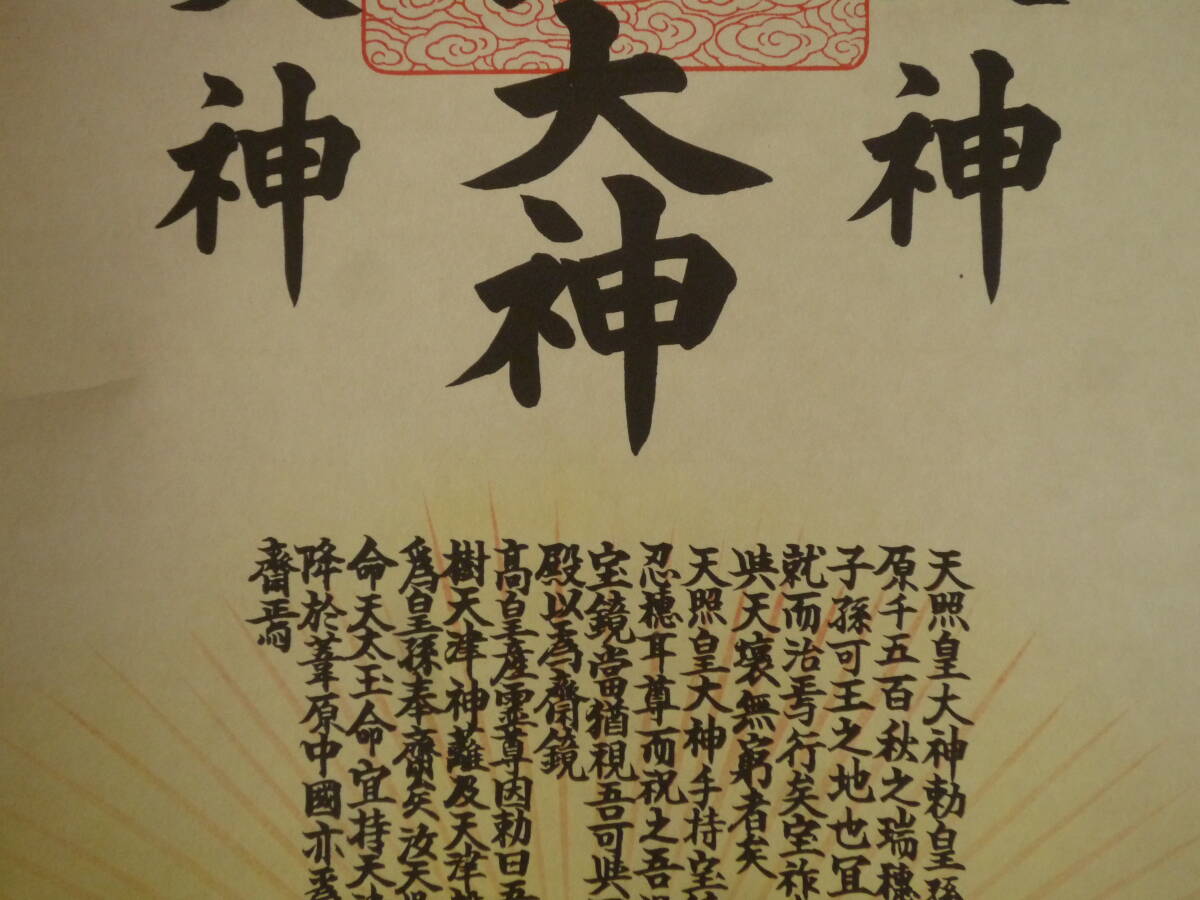 大神
神
神
天照皇大神勅皇孫
原千五百秋之瑞穗
子孫可王之地也宜
就而治焉行矣宝祚
與天壤無窮者矣
天照皇大神手持宝
忍穗耳尊而祝之吾
宝鏡當猶視吾可與
殿以爲齋鏡
高皇産霊尊因勅曰吾
樹天津神籬及天津
爲皇孫奉齋矣汝天
命天太玉命宜持天
降於葦原中國亦爲
齋焉